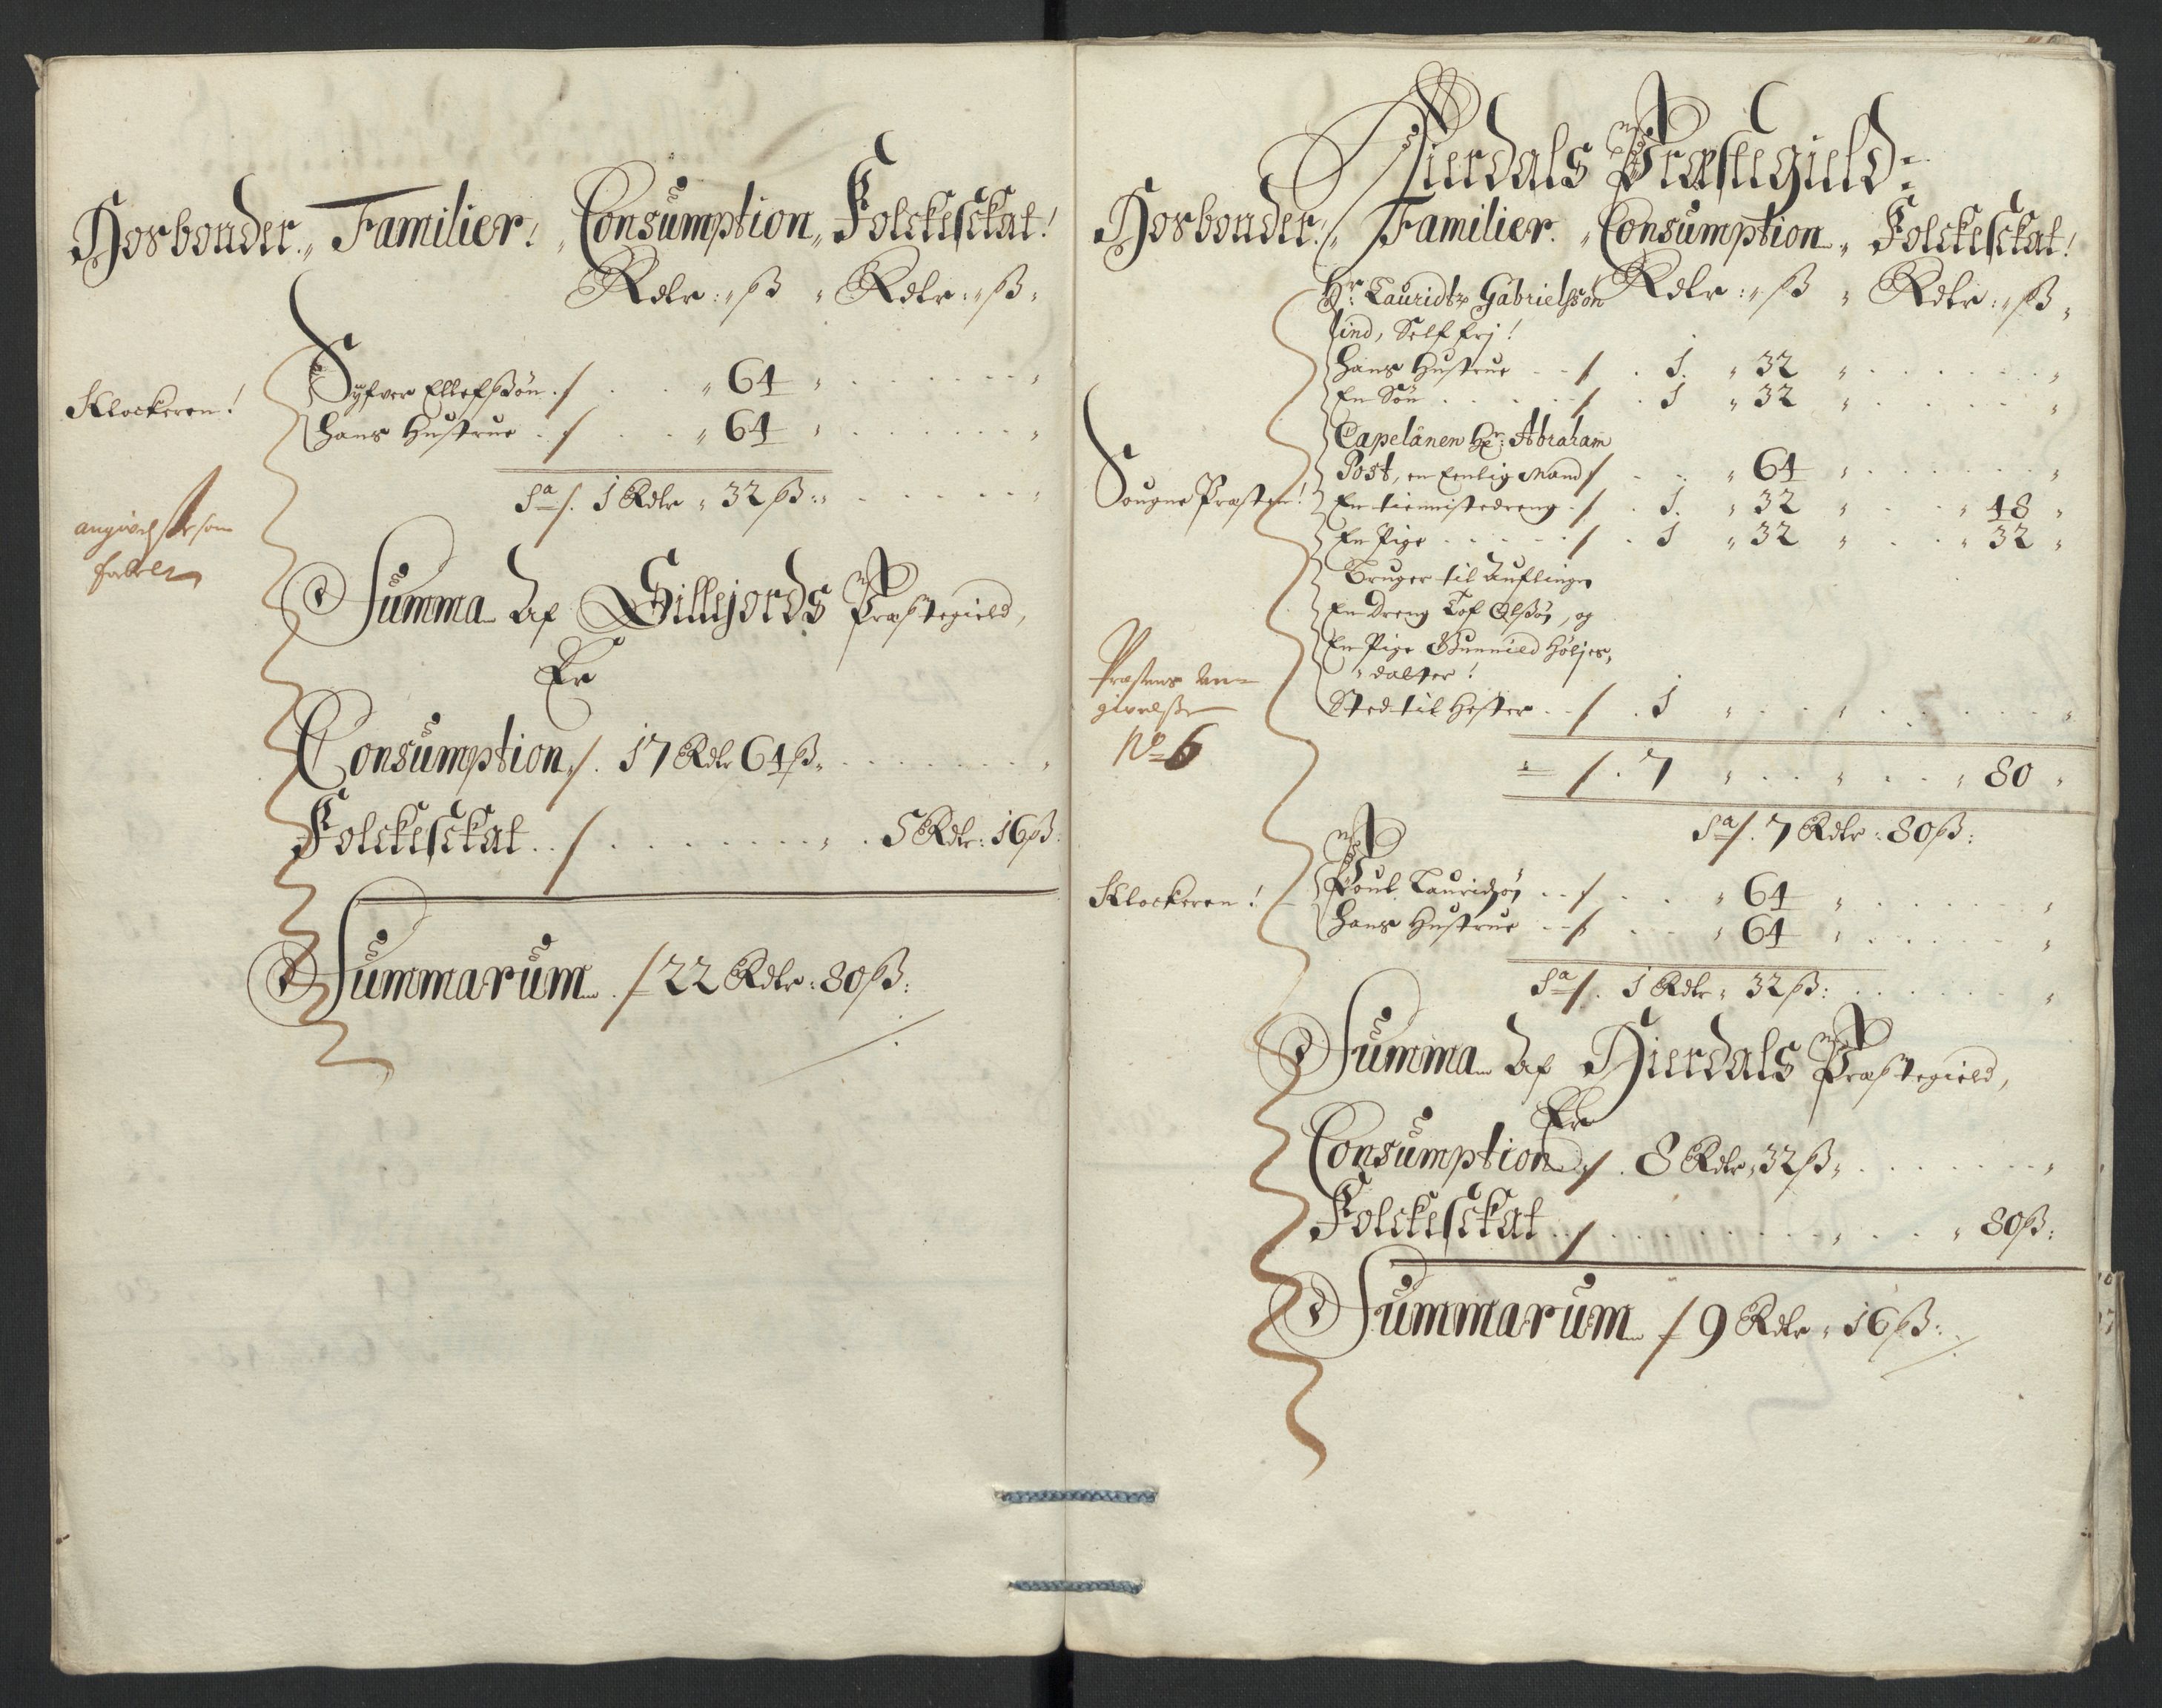 Hosbonder. Familier! Consumption, Folckeschat!
Rdlr: ß Rdlr: ß
Klockeren!
Syfver Ellefßøn / 64
Hans Hustrue / 64
Sa /. 1 Rdlr 32 ß:
angivelse som
falder
Summa Af Sillejords Præstegield,
Er
Consumption /. 17 Rdlr 64 ß.
Folckeschat / 5 Rdlr: 16 ß:
Summarum / 22 Rdlr: 80 ß:
Hierdals Præstegield:
Hosbonder! Familier. Consumption Folckeschat!
Rdlr: ß Rdlr: ß
Hr: Lauridtz Gabrielßøn
lind, Self frj!
Hans Hustrue / 1. 32
En Søn / 1 32
Capelânen Hr: Abraham
Post, en Eenlig Mand / 64
Sougne Præsten!
En tiennistedreng / 1. 32 48
En Pige / 1 32 32
Bruger til Auflinge
En Dreng Tof Olßøn, og
En Pige Gunnild Høljes-
datter!
Præstens An-
givelße
No 6
Sted til Hester / 1
/. 7 80
Sa /. 7 Rdlr: 80 ß:
Klockeren!
Poul Lauridzøn / 64
Hans Hustrue / 64
Sa /. 1 Rdlr: 32 ß:
Summa Af Hierdals Præstegield,
Er
Consumption /. 8 Rdlr, 32 ß,
Folckeschat / 80 ß:
Summarum / 9 Rdlr, 16 ß: